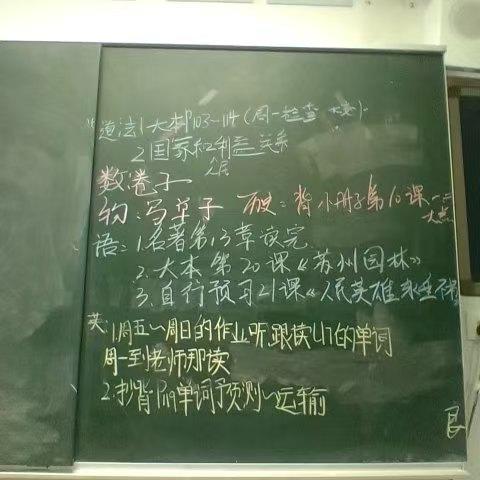 道法1.大本P103~114(周一检查
2.国家和利益关系
人民
数:卷子
物:写草子 历史:背小册子第10课一、二
大点
语:1.名著第13章读完
2.大本第20课《苏州园林》
3.自行预习21课《人民英雄永垂不朽
英:1.周五~周日的作业听,跟读U7的单词
周一到老师那读
2.抄背P119单词预测~运输